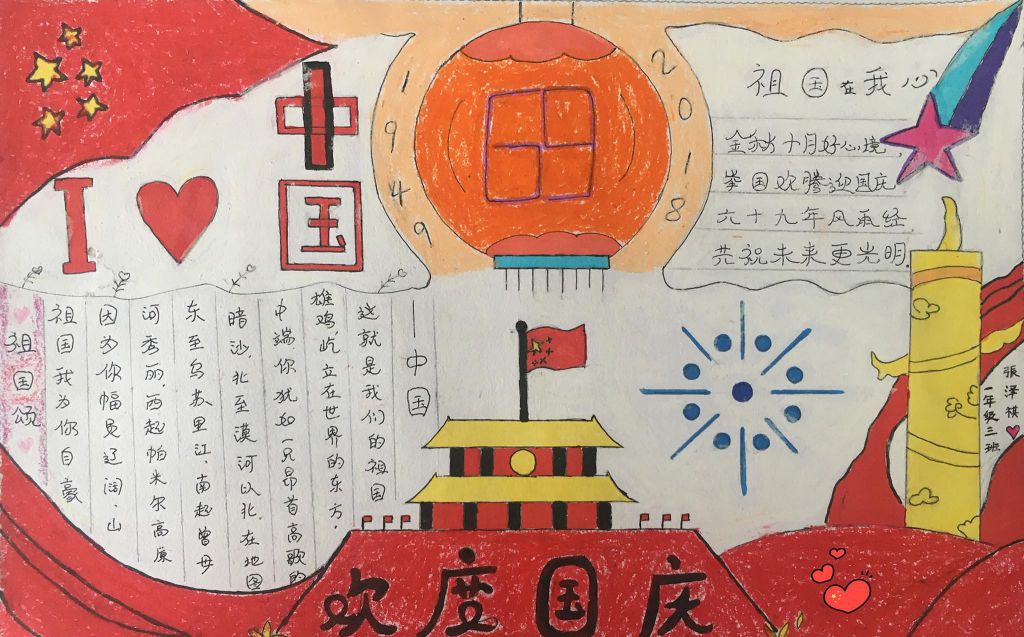 I 中国
1949
2018
祖国在我心
金秋十月好心境,
举国欢腾迎国庆
六十九年风雨经
共祝未来更光明.
祖国颂
祖国我为你自豪
因为你幅员辽阔,山
河秀丽,西起帕米尔高原
东至乌苏里江,南起曾母
暗沙,北至漠河以北,在地图
中端你犹如一只昂首高歌的
雄鸡,屹立在世界的东方,
这就是我们的祖国
——中国
張泽祺
一年级三班
欢度国庆